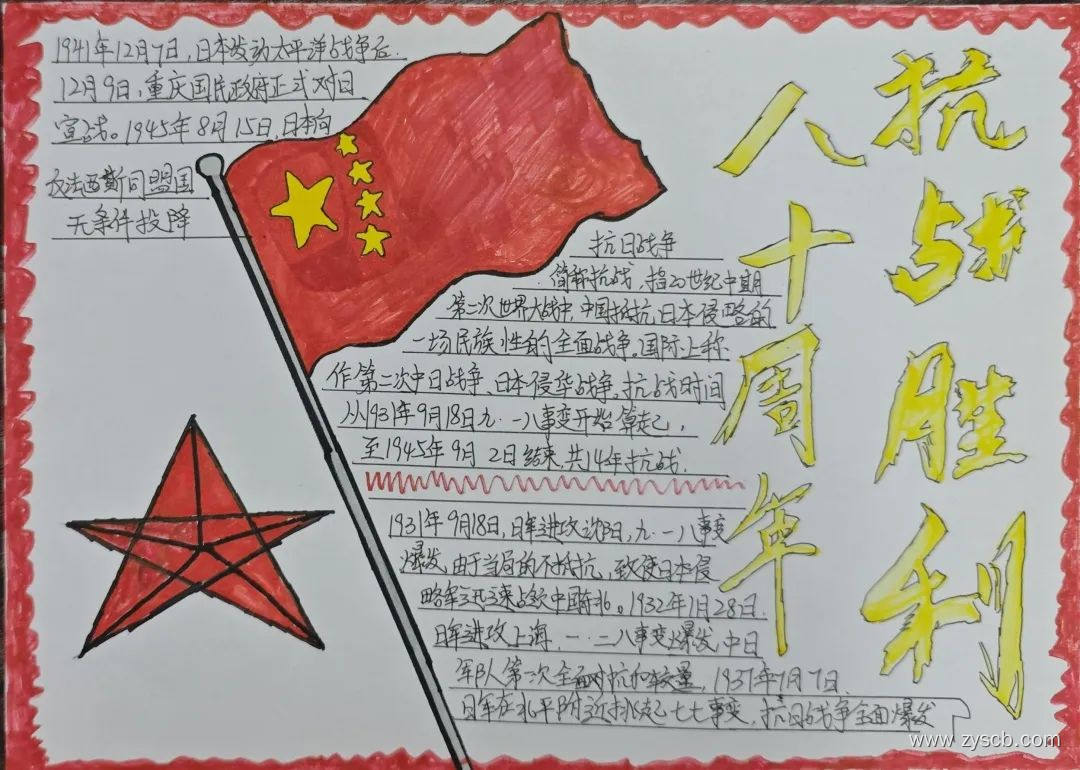 抗战胜利
八十周年
1941年12月7日,日本发动太平洋战争后.
12月9日,重庆国民政府正式对日
宣战。1945年8月15日,日本向
反法西斯同盟国
无条件投降
抗日战争
简称抗战,指20世纪中期
第二次世界大战中,中国抵抗日本侵略的
一场民族性的全面战争。国际上称
作第二次中日战争、日本侵华战争。抗战时间
从1931年9月18日九·一八事变开始算起,
至1945年9月2日结束.共14年抗战.
1931年9月18日,日军进攻沈阳,九·一八事变
爆发.由于当局的不抵抗,致使日本侵
略军迅速占领中国东北。1932年1月28日.
日军进攻上海.一·二八事变爆发,中日
军队第一次全面对抗和较量,1937年7月7日.
日军在北平附近挑起七七事变,抗日战争全面爆发
www.zyscb.com